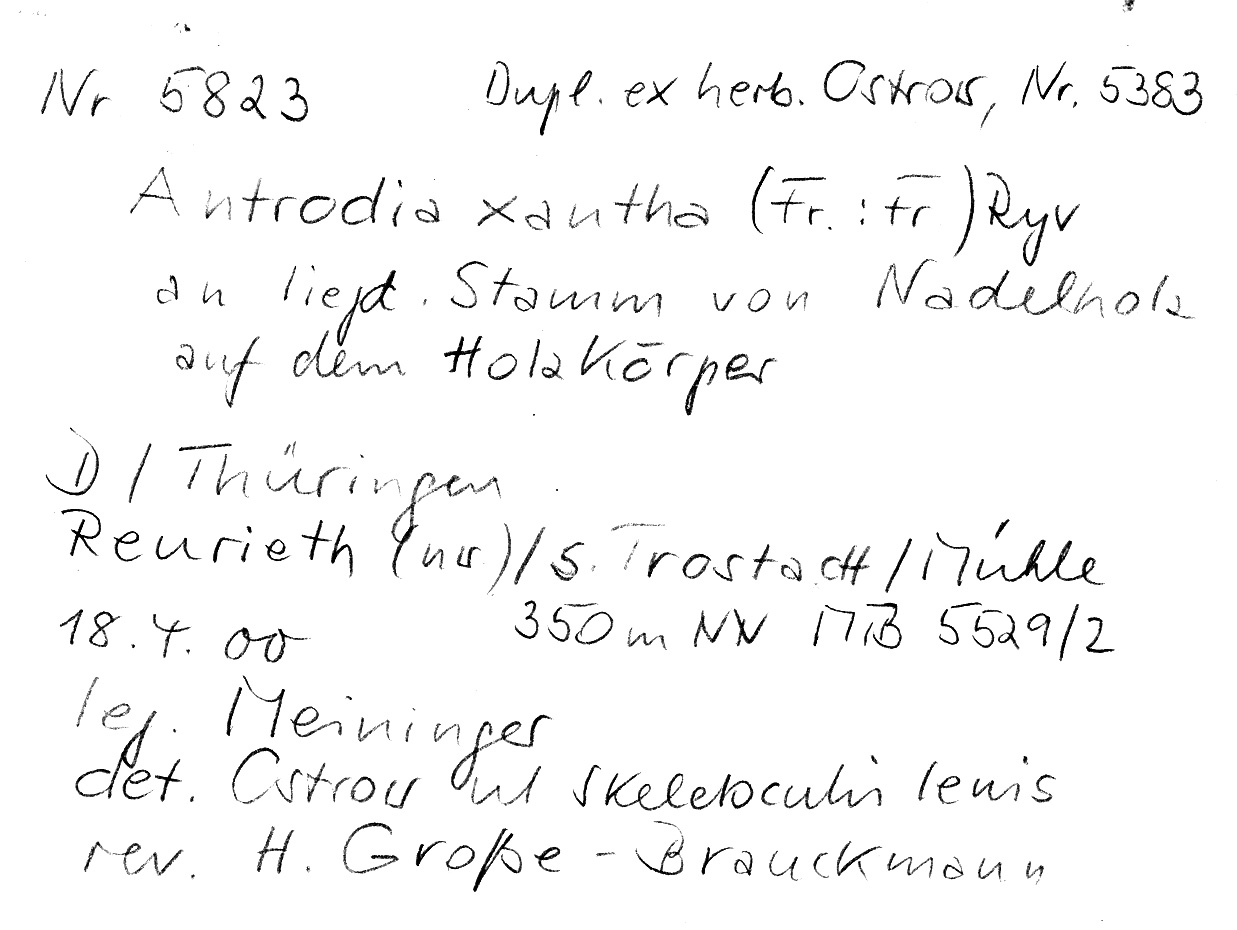 Nr 5823 Dupl. ex herb. Ostrow, Nr. 5383
Antrodia xantha (Fr. : Fr) Ryv
an liegd. Stamm von Nadelholz
auf dem Holzkörper
D / Thüringen
Reurieth (nw) / s. Trostadt / Mühle
18.4.00 350 m NN MTB 5529/2
leg. Meininger
det. Ostrow als Skeletocutis lenis
rev. H. Große-Brauckmann